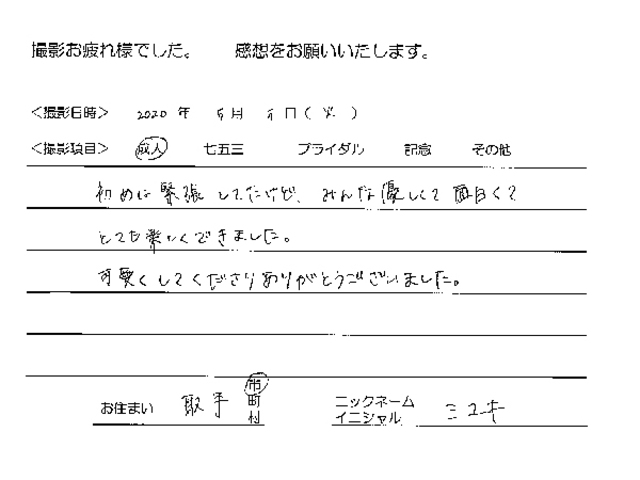 撮影お疲れ様でした。 感想をお願いいたします。
<撮影日時> 2020 年 5月 5日(火)
<撮影項目> 成人 七五三 ブライダル 記念 その他
初めは緊張してたけど、みんな優しくて面白くて
とても楽しくできました。
可愛くしてくださりありがとうございました。
お住まい 取手 市 町 村
ニックネーム イニシャル ミユキ